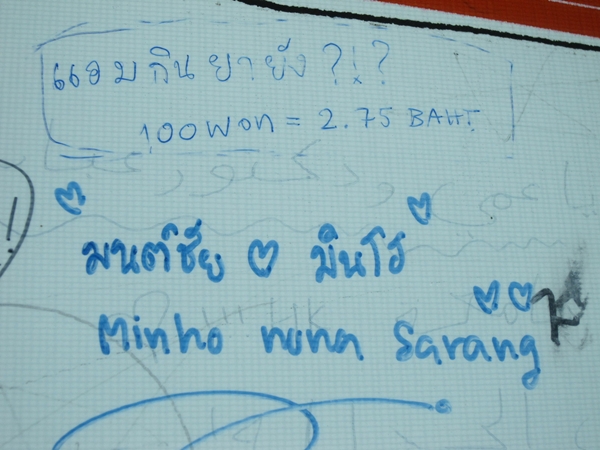 แอมกินยายัง?!?
100 won = 2.75 BAHT
มนต์ชัย ♡ มินโฮ
Minho nuna Sarang